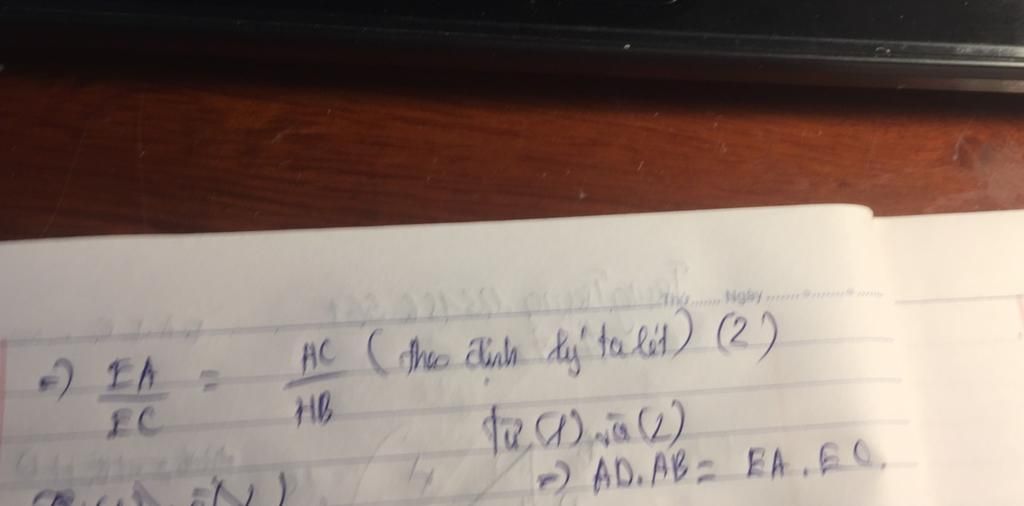 Thứ....... Ngày
=) EA/EC = AC/HB (theo định lý ta lét) (2)
từ (1) và (2)
=) AD.AB = EA.EC.